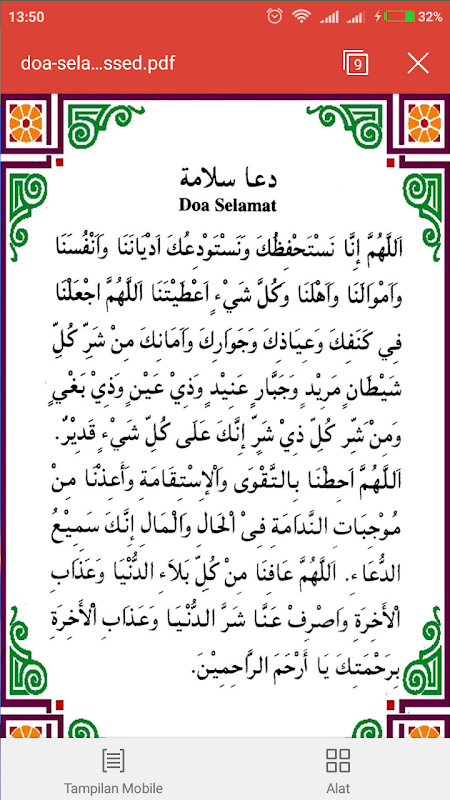 13:50
32%
doa-sela...ssed.pdf
9
دعا سلامة
Doa Selamat
اَللَّهُمَّ إِنَّا نَسْتَحْفِظُكَ وَنَسْتَوْدِعُكَ اَدْيَانَنَا وَاَنْفُسَنَا
وَاَمْوَالَنَا وَاَهْلَنَا وَكُلَّ شَيْءٍ اَعْطَيْتَنَا اَللَّهُمَّ اجْعَلْنَا
فِي كَنَفِكَ وَعِيَاذِكَ وَجِوَارِكَ وَاَمَانِكَ مِنْ شَرِّ كُلِّ
شَيْطَانٍ مَرِيْدٍ وَجَبَّارٍ عَنِيْدٍ وَذِيْ عَيْنٍ وَذِيْ بَغْيٍ
وَمِنْ شَرِّ كُلِّ ذِيْ شَرٍّ إِنَّكَ عَلَى كُلِّ شَيْءٍ قَدِيْرٌ.
اَللَّهُمَّ اَحِطْنَا بِالتَّقْوَى وَاْلإِسْتِقَامَةِ وَأَعِذْنَا مِنْ
مُوْجِبَاتِ النَّدَامَةِ فِىْ اْلحَالِ وَاْلمَالِ إِنَّكَ سَمِيْعُ
الدُّعَاءِ. اَللَّهُمَّ عَافِنَا مِنْ كُلِّ بَلاَءِ الدُّنْيَا وَعَذَابِ
اْلأَخِرَةِ وَاصْرِفْ عَنَّا شَرَّ الدُّنْيَا وَعَذَابَ اْلأَخِرَةِ
بِرَحْمَتِكَ يَا أَرْحَمَ الرَّاحِمِيْنَ.
Tampilan Mobile
Alat